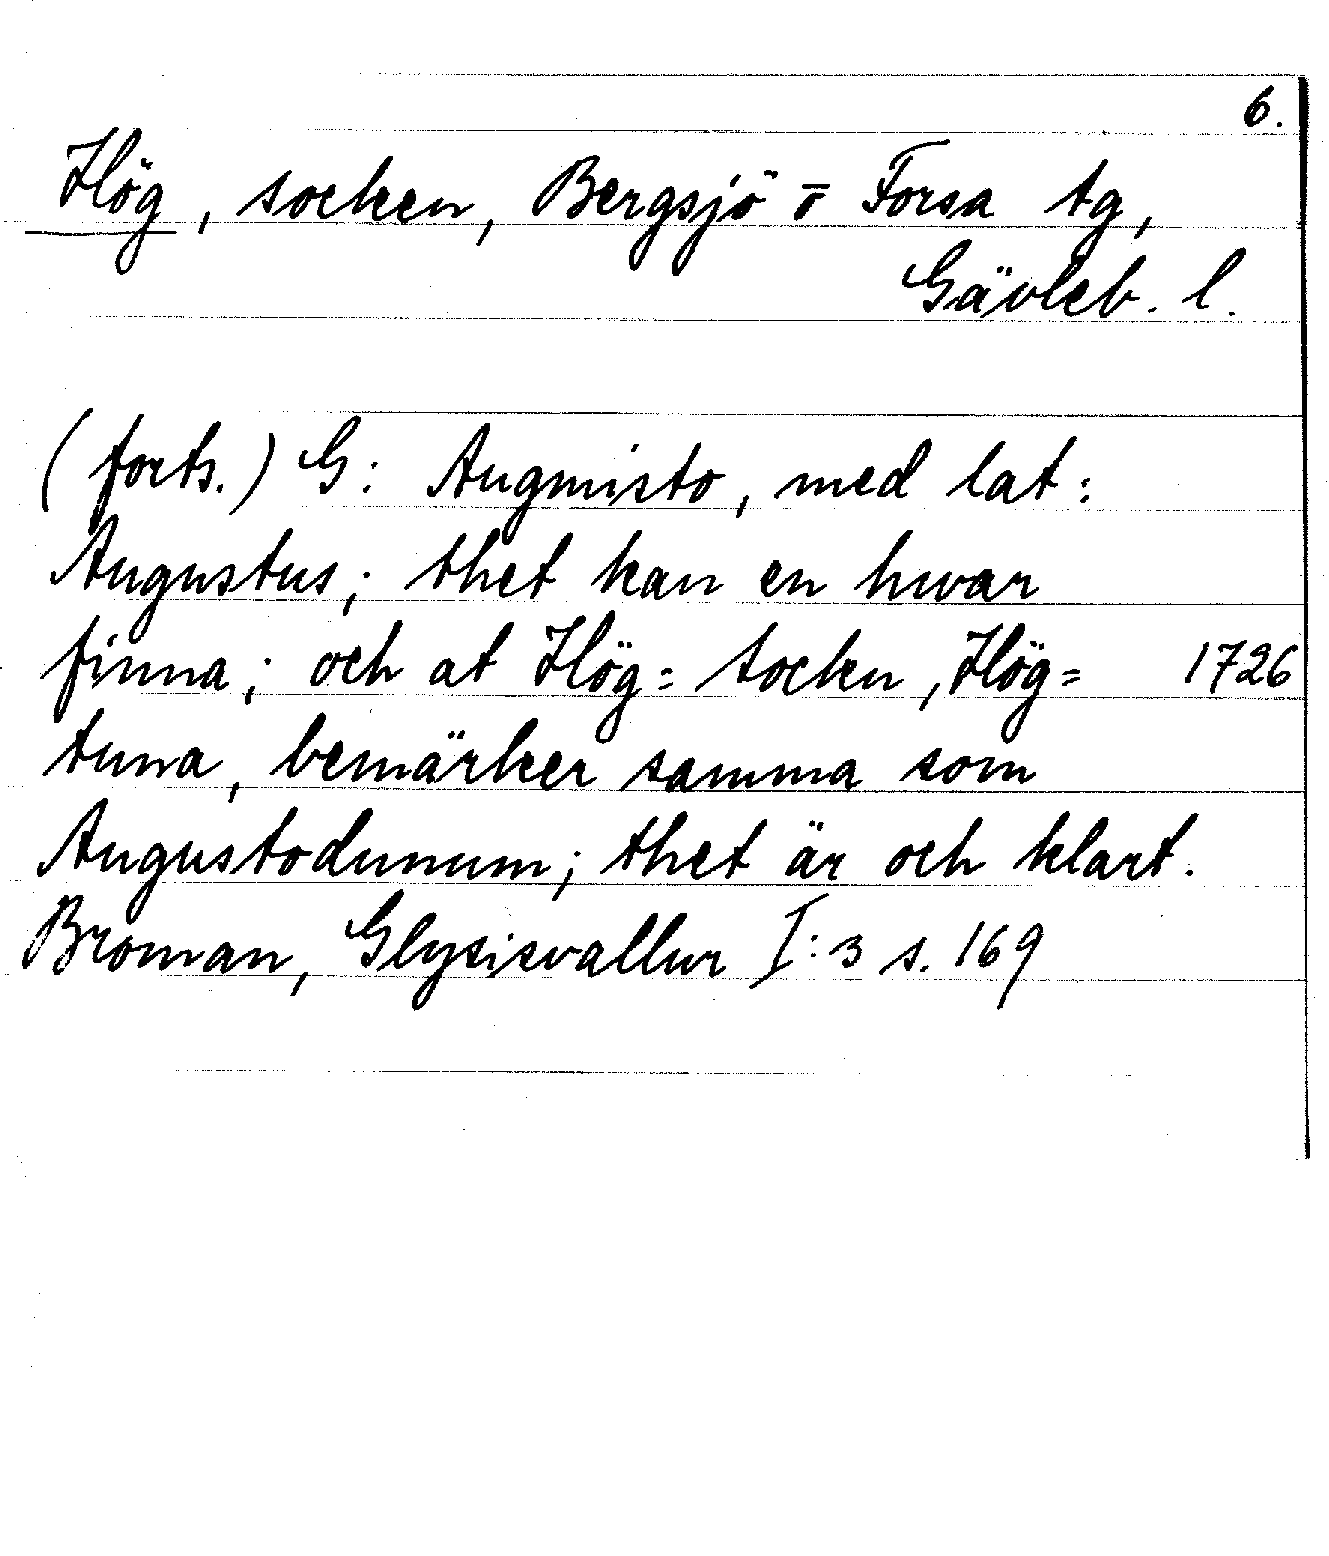 6.
Hög, socken, Bergsjö o Forsa tg,
Gävleb. l.
(forts.) G: Augmisto, med lat:
Augustus; thet kan en hwar
finna; och at Hög= tocken, Hög= 1726
tuna, bemärker samma som
Augustodunum; thet är och klart.
Broman, Glysisvallur I:3 s. 169